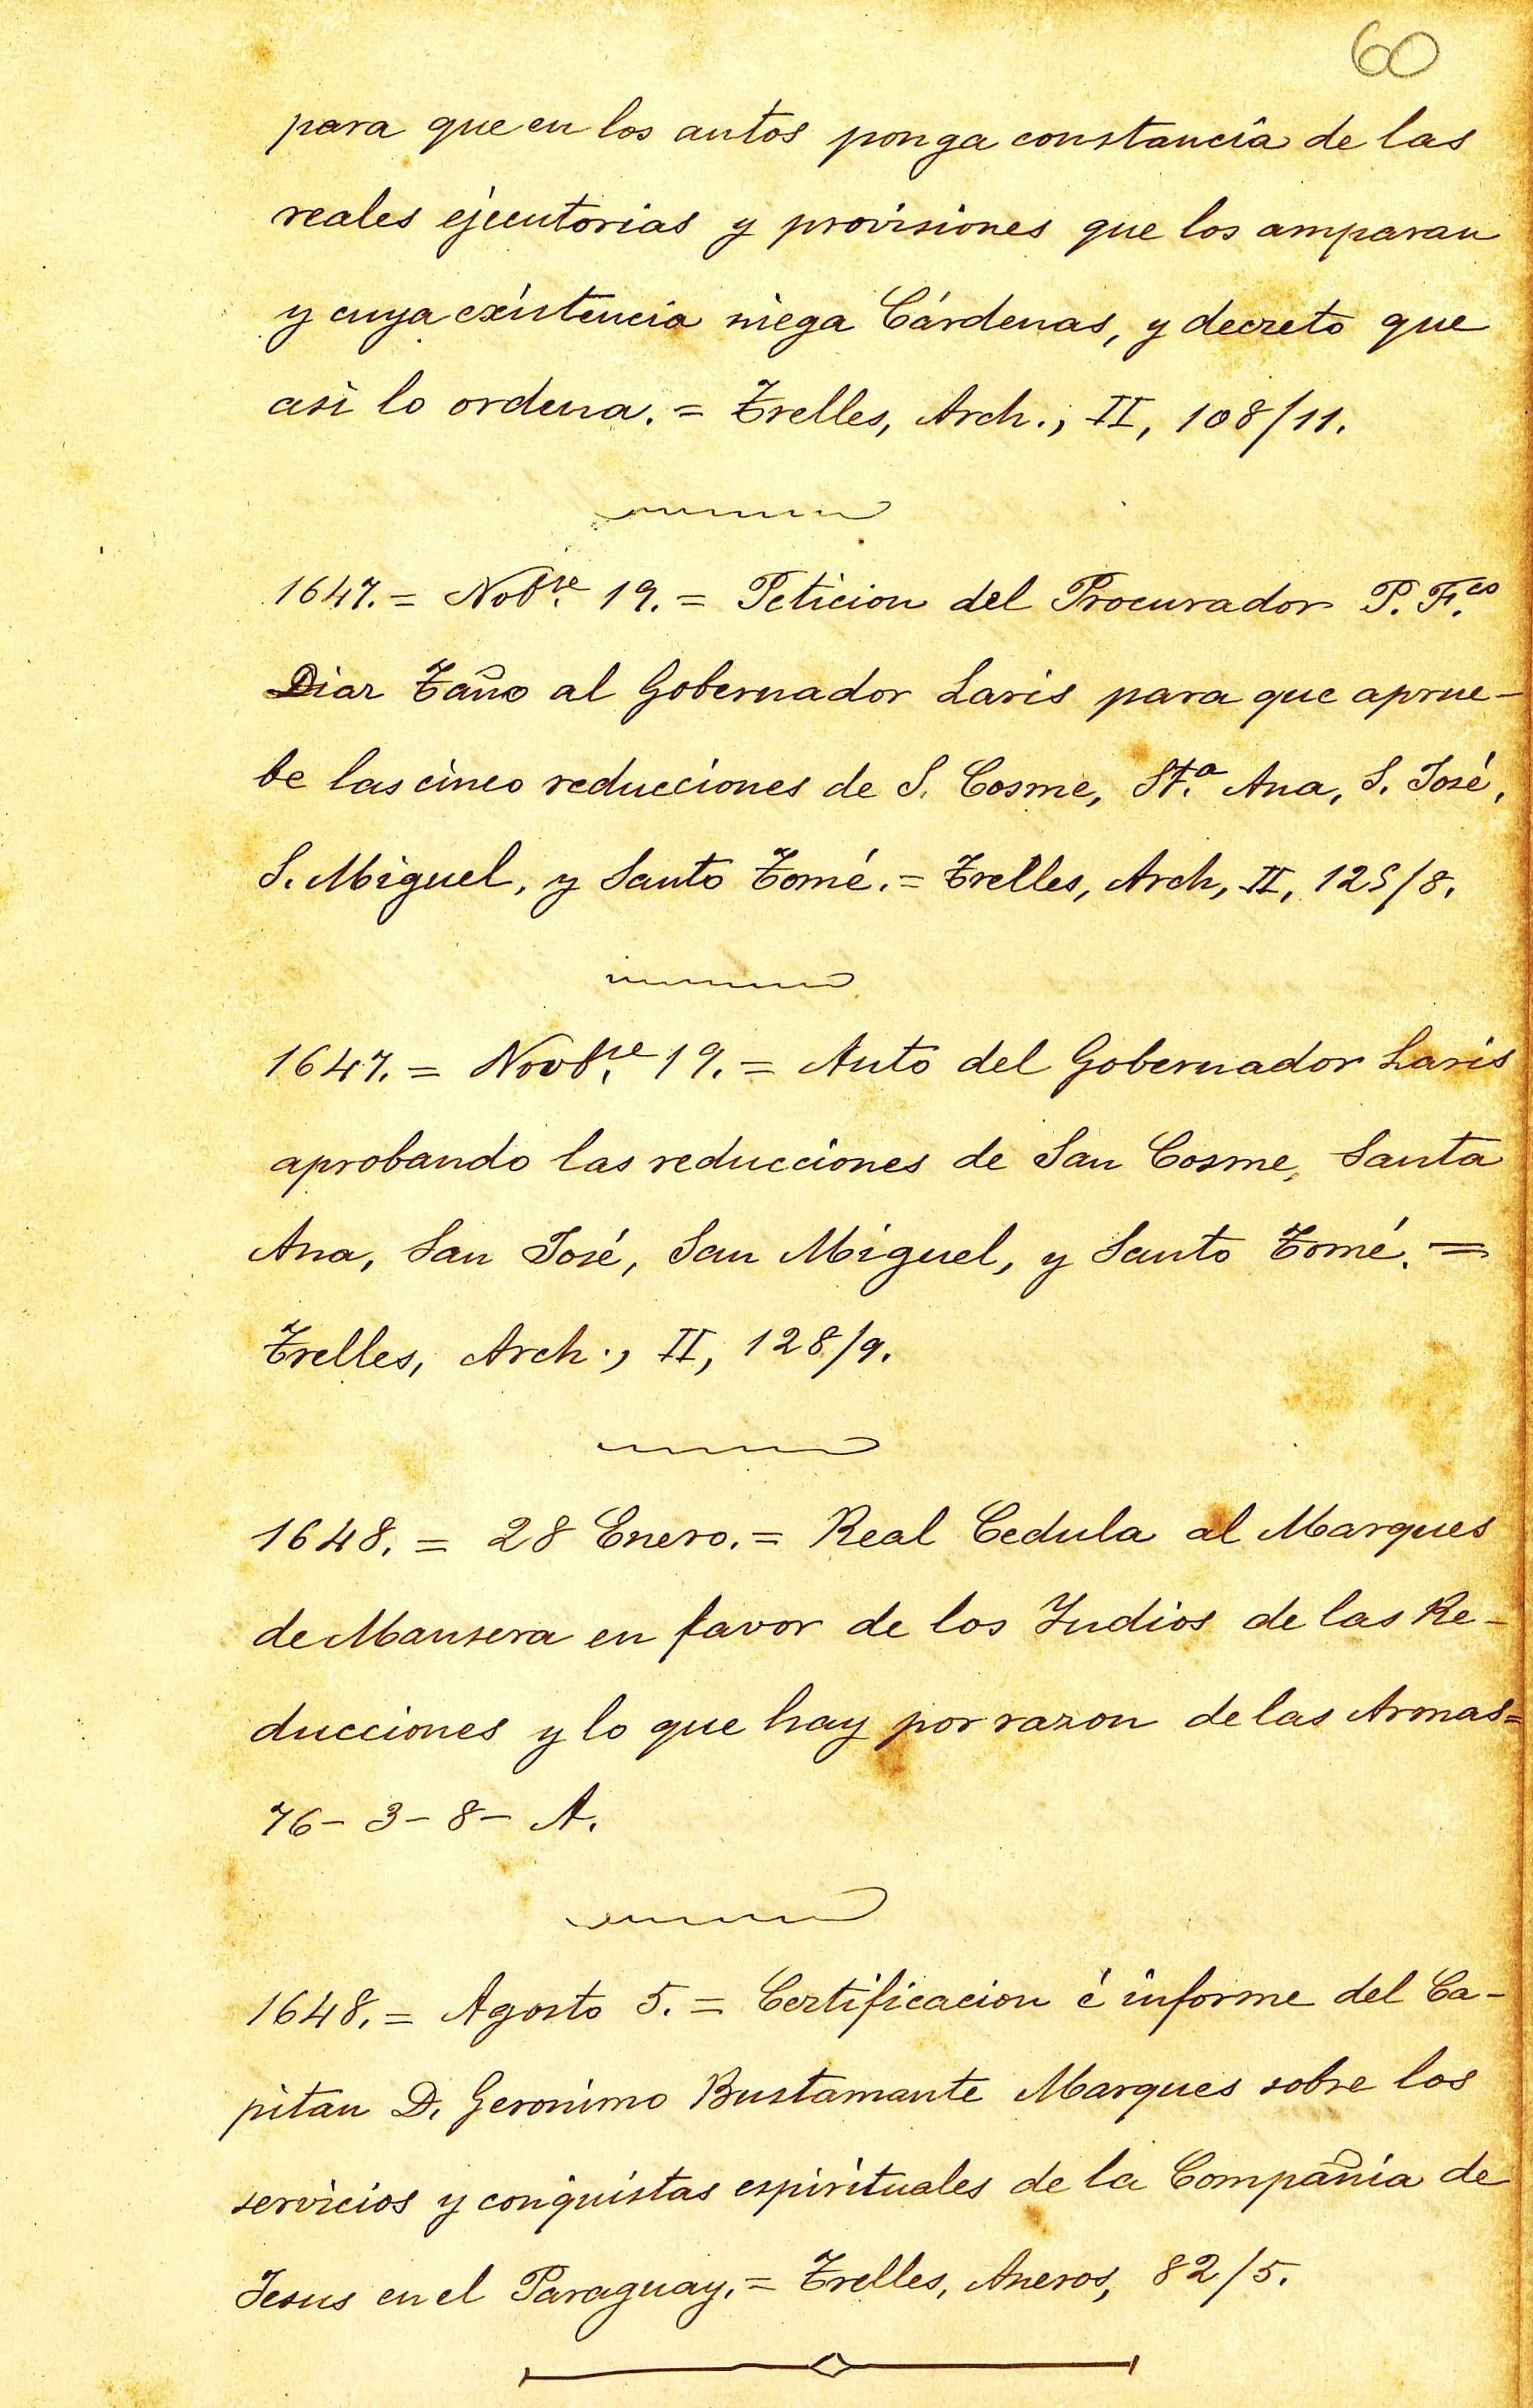 60
para que en los autos ponga constancia de las
reales ejecutorias y provisiones que los amparan
y cuya existencia niega Cárdenas, y decreto que
asi lo ordena. = Trelles, Arch., II, 108/11.
1647. = Nobre. 19. = Peticion del Procurador P. F.co
Diaz Taño al Gobernador Laris para que aprue-
be las cinco reducciones de S. Cosme, St.a Ana, S. José,
S. Miguel, y Santo Tomé. = Trelles, Arch, II, 125/8.
1647. = Novbre. 19. = Auto del Gobernador Laris
aprobando las reducciones de San Cosme, Santa
Ana, San José, San Miguel, y Santo Tomé. =
Trelles, Arch., II, 128/9.
1648. = 28 Enero. = Real Cedula al Marques
de Mansera en favor de los Indios de las Re-
ducciones y lo que hay por razon de las Armas=
76-3-8- A.
1648. = Agosto 5. = Certificacion é informe del Ca-
pitan D. Geronimo Bustamante Marques sobre los
servicios y conquistas espirituales de la Compañia de
Jesus en el Paraguay. = Trelles, Aneros, 82/5.